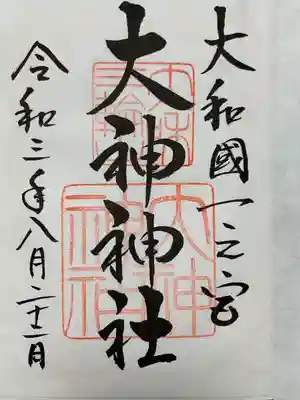 大和國一之宮
大神神社
令和三年八月二十一日
大神
神社